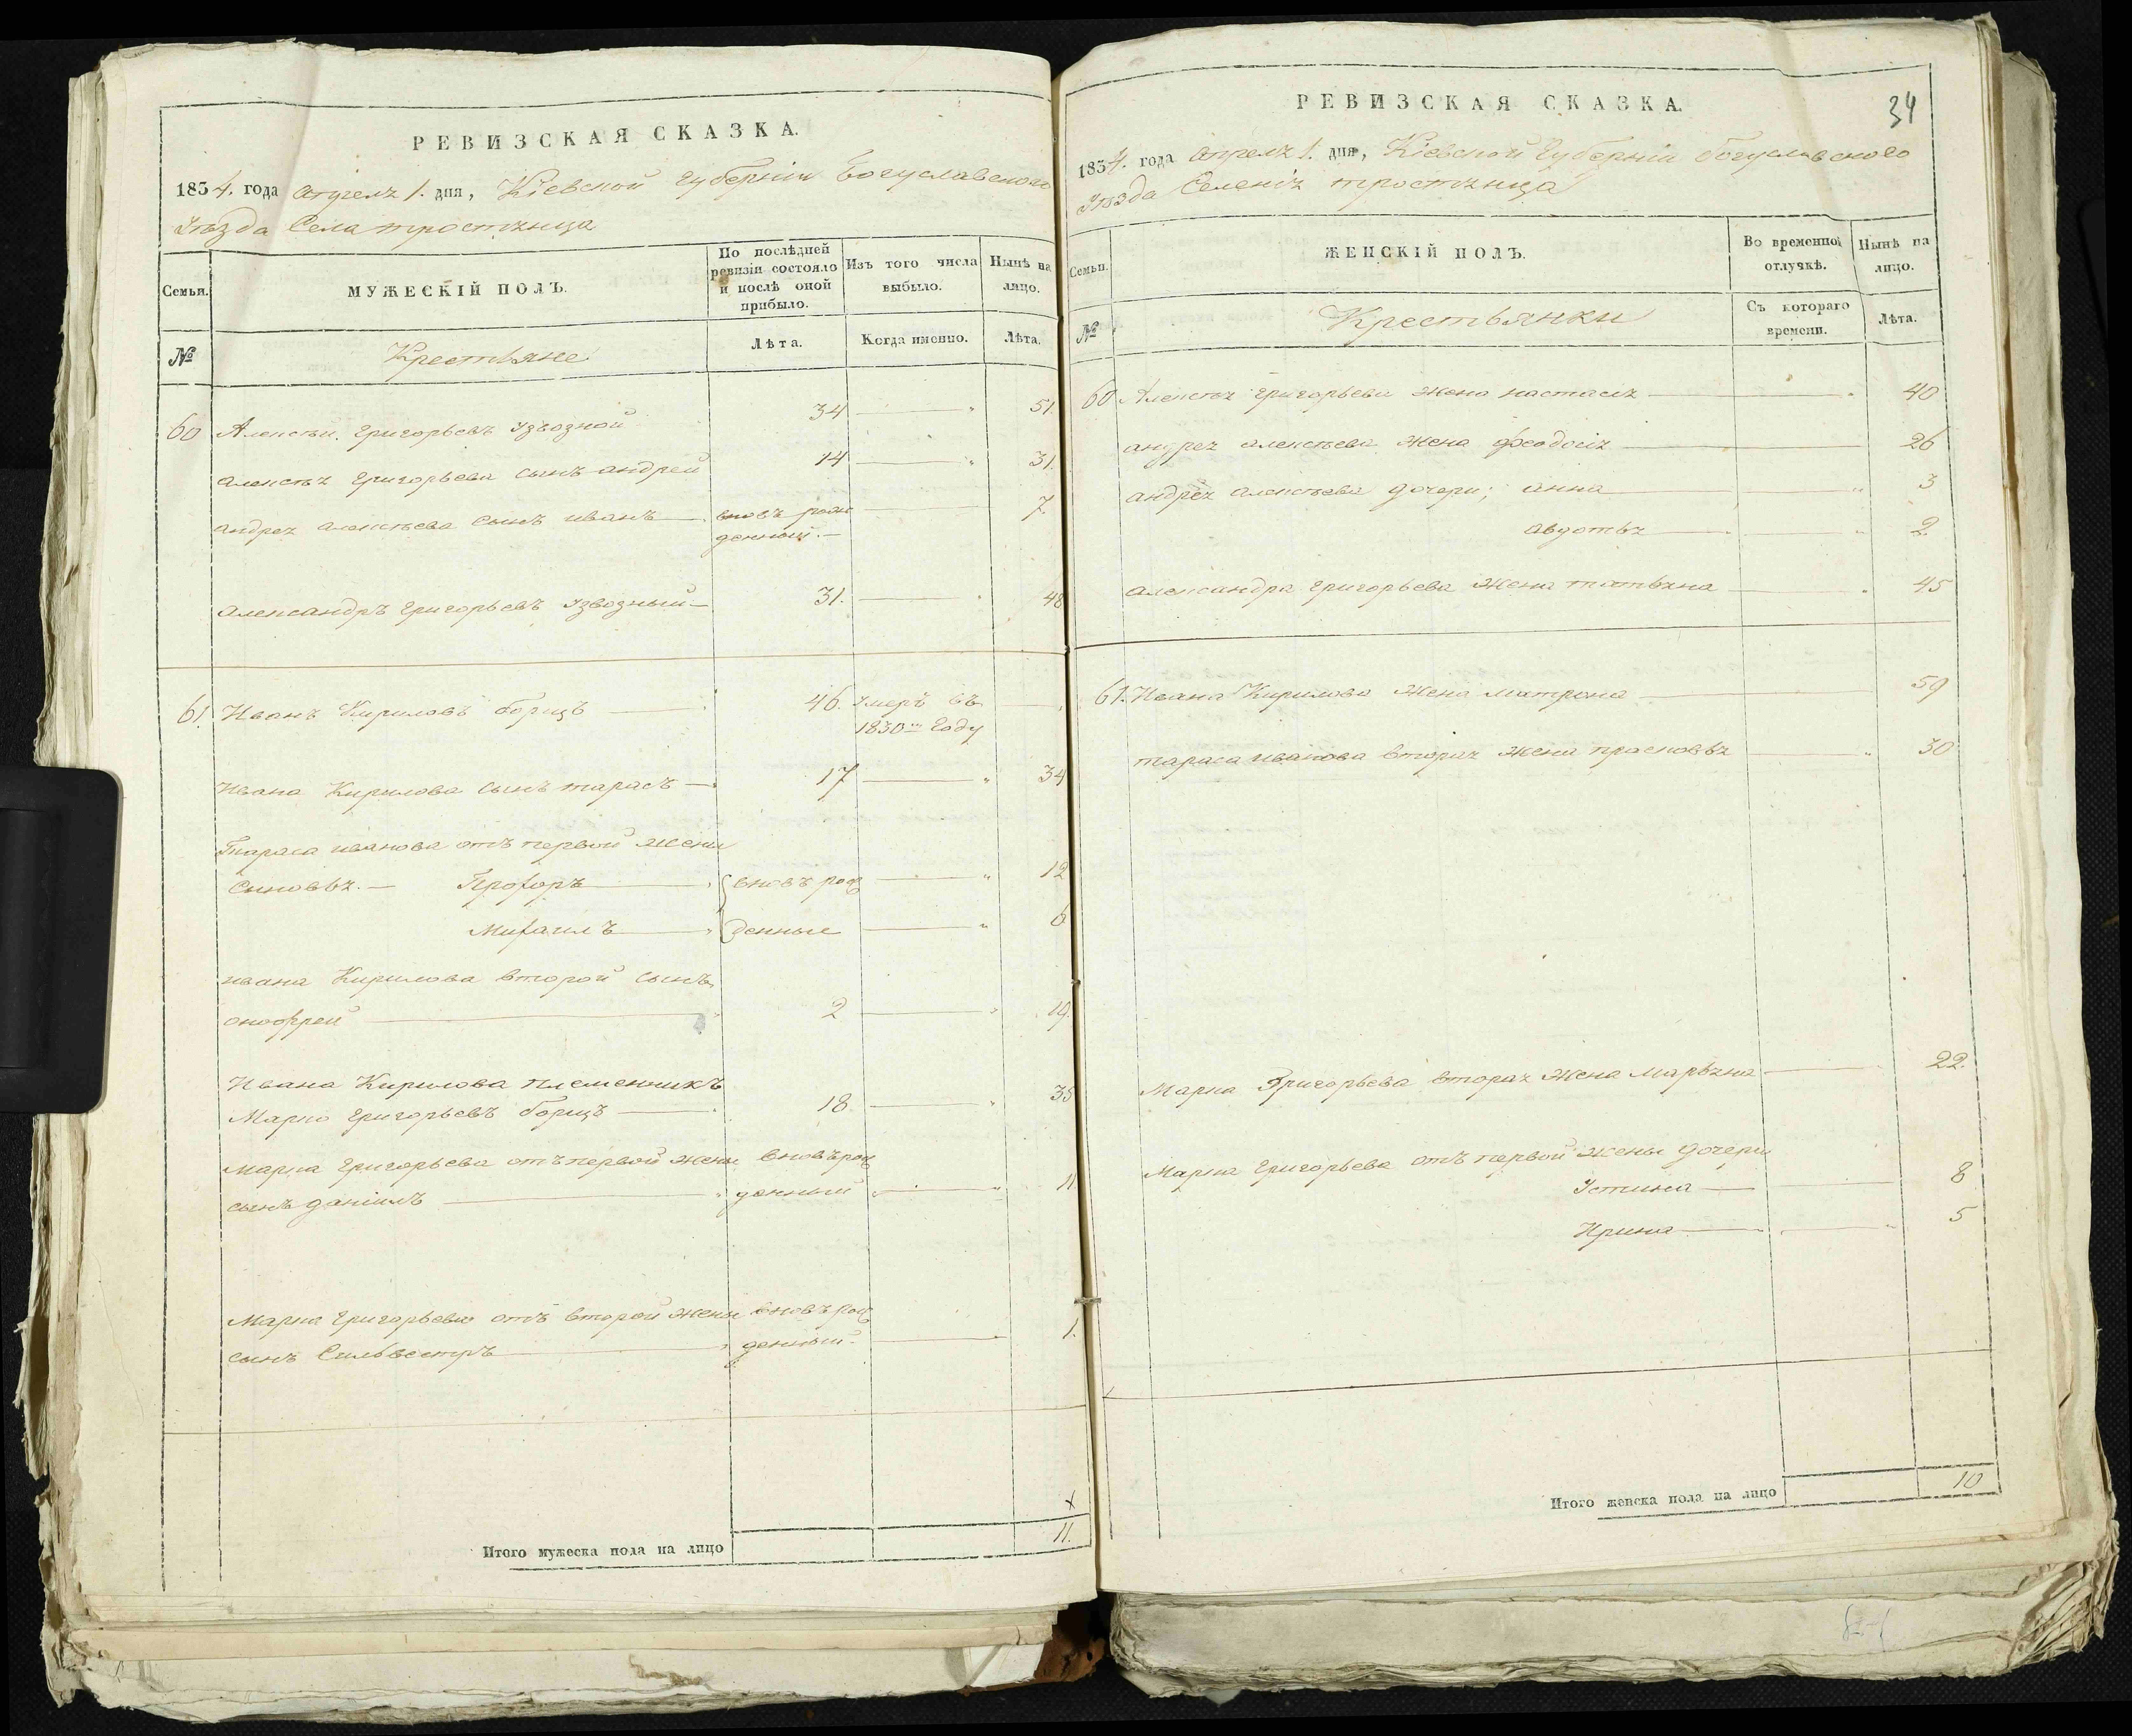 РЕВИЗСКАЯ СКАЗКА.
1834. года апреля 1. дня, Кіевской губерніи Богуславского
Уѣзда Села тростинца
Семьи.
МУЖЕСКІЙ ПОЛЪ.
По послѣдней ревизіи состояло и послѣ оной прибыло.
Изъ того числа выбыло.
Нынѣ на лицо.
№
Крестьяне
Лѣта.
Когда именно.
Лѣта.
60 Алексѣй Григорьевъ 34 51.
алексѣя Григорьева сынъ андрей 14 31.
андрея алексѣева сынъ иванъ вновь рож 7.
денный.
александръ григорьевъ 31. 48
61. Иванъ Кириловъ борщъ 46. Умеръ въ
1830м году
Ивана Кирилова сынъ тарасъ 17 34
Тараса иванова отъ первой жены
сыновья. Прохоръ вновь рож 12
Михаилъ денные 6
ивана Кирилова второй сынъ
онофрей 2 19.
Ивана Кирилова племенникъ
Марко григорьевъ борщъ 18 35
Марка григорьева отъ первой жены вновь рож
сынъ даніилъ денный 11
Марка григорьева отъ второй жены вновь рож
сынъ Сильвестръ денный 1.
х
Итого мужеска пола на лицо 11.
РЕВИЗСКАЯ СКАЗКА.
34
1834. года апреля 1. дня, Кіевской Губерніи богуславского
Уѣзда Селенія тростинца
Семьи.
ЖЕНСКІЙ ПОЛЪ.
Во временной отлучкѣ.
Нынѣ на лицо.
№
Крестьянки
Съ котораго времени.
Лѣта.
60 Алексѣя григорьева жена настасія 40
андрея алексѣева жена феодосія 26
андрея алексѣева дочери; анна 3
авдотья 2.
александра григорьева жена татьяна 45
61. Ивана Кирилова жена матрона 59
тараса иванова вторая жена прасковья 30
Марка Григорьева вторая жена марьяна 22.
Марка григорьева отъ первой жены дочери
Устина 8
Ирина 5
Итого женска пола на лицо 10